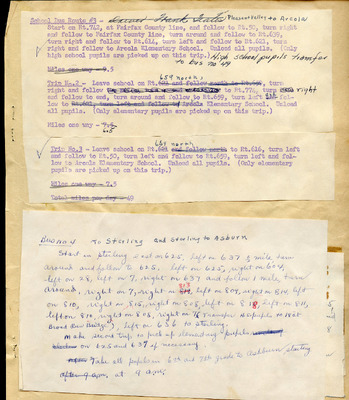 School Bus Route #3 - Pleasant valley to Arcola
Start on Rt.742, at Fairfax County line, follow to Rt.50, turn right
and follow to Fairfax County line, turn around and follow to Rt.659,
turn right and follow to Rt.614, turn left and follow to Rt.621, turn
right and follow to Arcola Elementary School. Unload all pupils. (Only
high school pupils are picked up on this trip.) High school pupils transfer
to bus no 44
Miles one way - 9.5
659 north,
Trip No.2 - Leave school on Rt. turn
right and follow to Rt.774, turn right
and follow to end, turn around and follow to Rt.659, turn left fol-
low to Arcola Elementary School. Unload
all pupils. (Only elementary pupils are picked up on this trip.)
Miles one way - 7
659 north
Trip No.3 - Leave school on Rt. and follow north to Rt.616, turn left
and follow to Rt.50, turn left and follow to Rt.659, turn left and fol-
low to Arcola Elementary School. Unload all pupils. (Only elementary
pupils are picked up on this trip.)
Miles one way - 7.5
Total miles per day - 49
Bus no 4 To Sterling and Sterling to Ashburn
Start in Sterling west on 625, left on 637 ½ mile, turn
around and follow to 625, left on 625, right on 604,
left on 28, left on 7, right on 637 and follow 1 mile, turn
around, right on 7, right on left on 804, right on 814, left
on 810, right on 815, right on 808, left on 818, left on 811,
left on 810, right on 808, right on 7 (Transfer H.S. pupils to 18 at
Broad Run Bridge), left on 636 to Sterling.
Make second trip to pick up elementary pupils
on 625 and 637 if necessary.
Take all pupils in 6th and 7th grade to Ashburn starting
at 9 a.m.